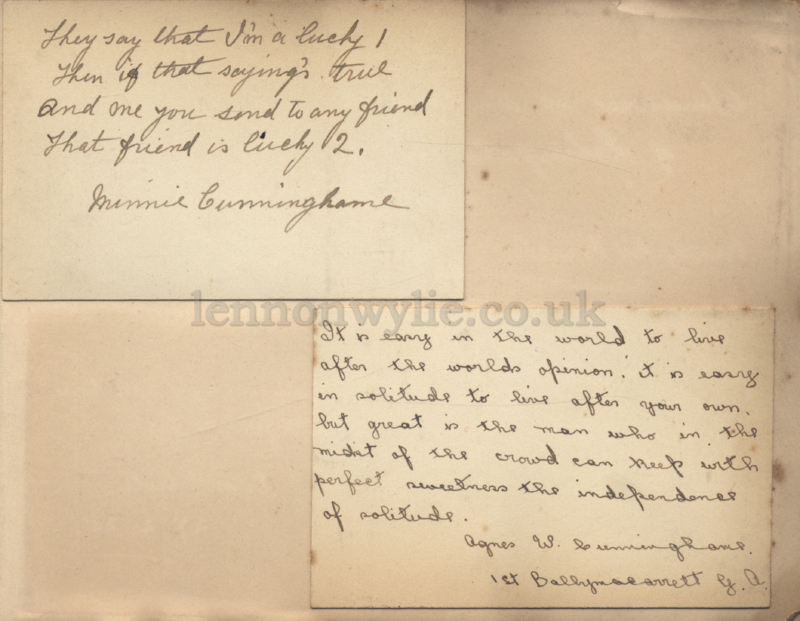 They say that I'm a lucky 1
Then if that saying's true
And me you send to any friend
That friend is lucky 2.
Minnie Cunninghame
lennonwylie.co.uk
It is easy in the world to live
after the worlds opinion. it is easy
in solitude to live after your own.
but great is the man who in the
midst of the crowd can keep with
perfect sweetness the independence
of solitude.
Agnes W. Cunninghame.
1st Ballymacarrett G. A.